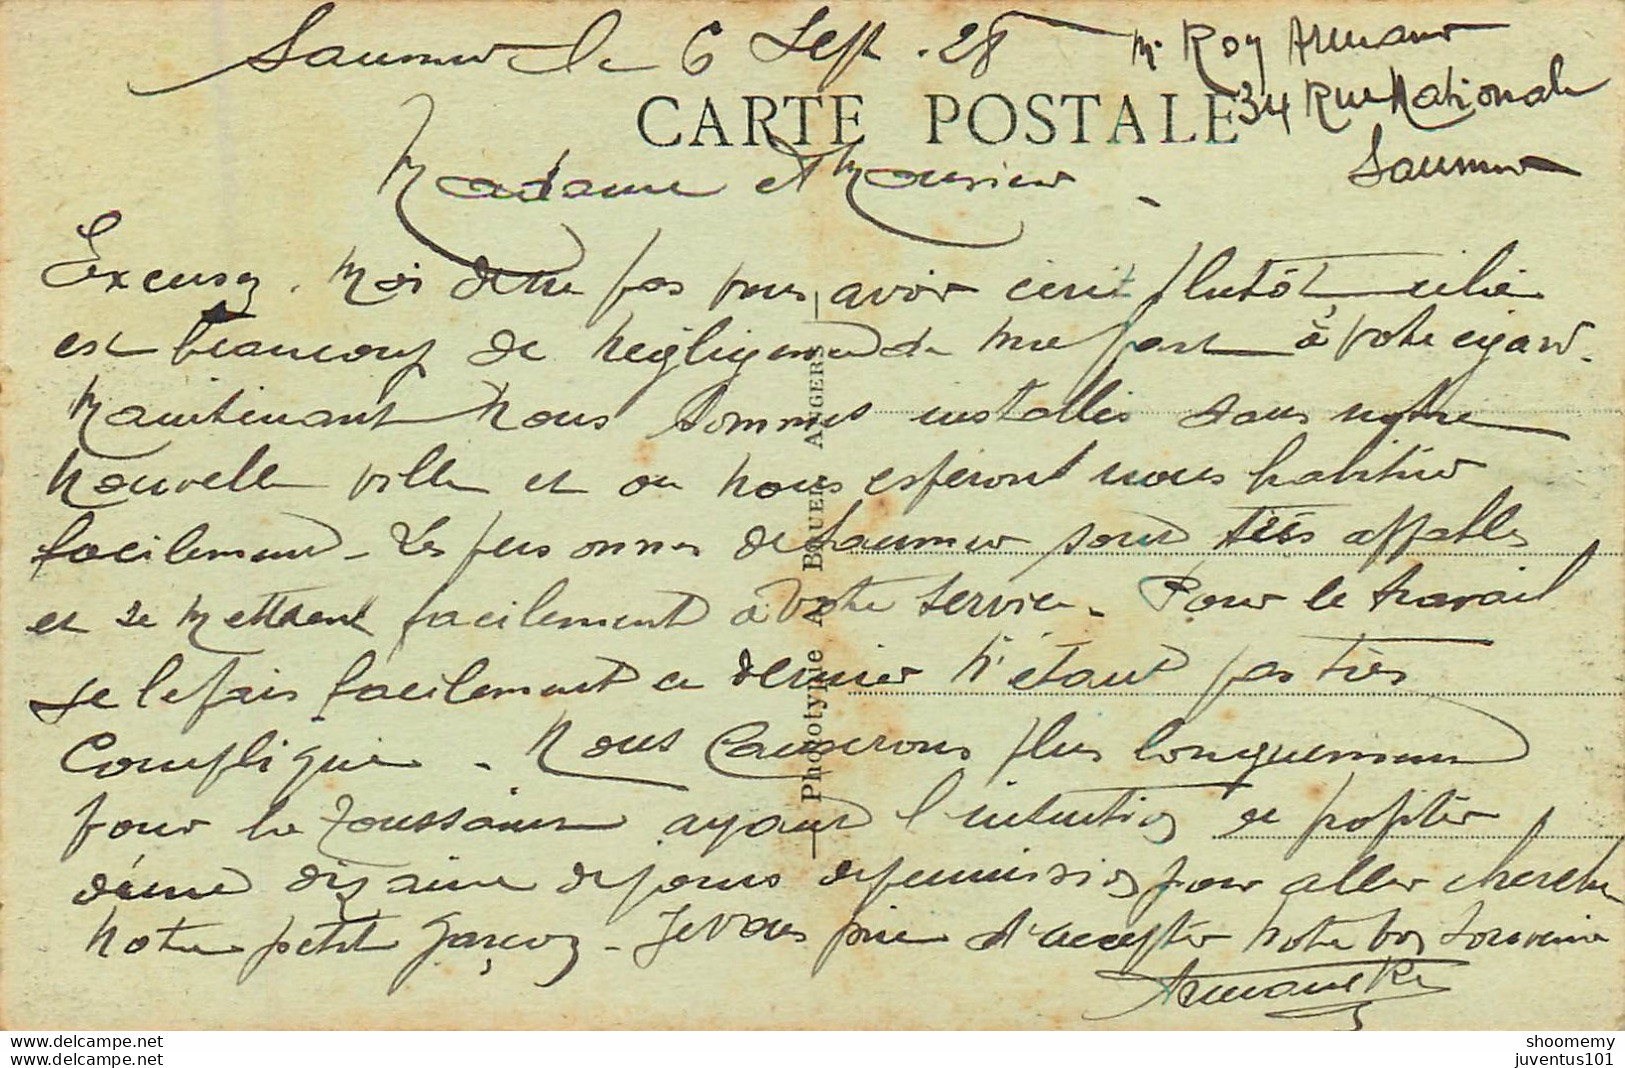 Saumur le 6 Sept. 28
Mr Roy Armand
34 Rue Nationale
Saumur
CARTE POSTALE
Madame et Monsieur
Excusez Moi de ne pas vous avoir écrit plutôt
est beaucoup de négligence de ma part à votre égard.
Maintenant nous sommes installés dans notre
nouvelle ville et ou nous espéront nous habituer
facilement. Les personnes de Saumur sont très affables
et se mettent facilement à votre service. Pour le travail
je le fais facilement ce dernier n'étant pas très
compliqué. Nous causerons plus longuement
pour la Toussaint ayant l'intention de profiter
d'une dizaine de jours de permission pour aller chercher
notre petit garçon. Je vous prie d'accepter notre bon souvenir
Armand Roy
Phototype A. Bouer Angers
shoomemy
juventus101